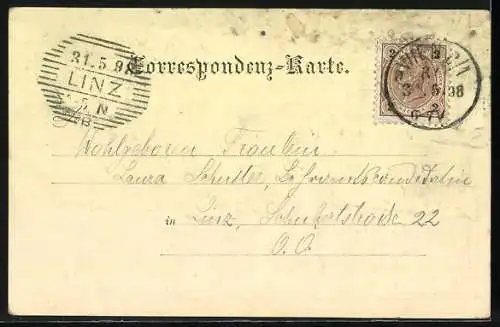 31.5.98
LINZ
5 N
Correspondenz-Karte.
Wohlgeboren Fräulein
Laura Schuller, Lehramtskandidatin
in Linz, Schubertstraße 22
O. Ö.